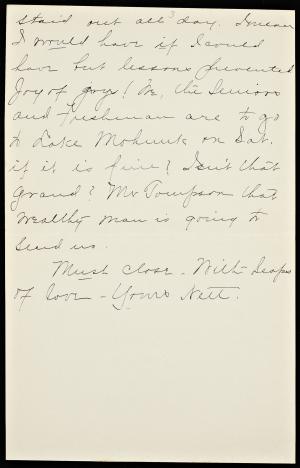 staid out all day. I mean
I would have if I could
have but lessons prevented
Joy of joys! We, the Seniors
and Freshman are to go
to Lake Mohunk on Sat.
if it is fine! Isn't that
Grand? Mr Tompson that
wealthy man is going to
send us.
Must close - With heaps
of love - Yours Nett.